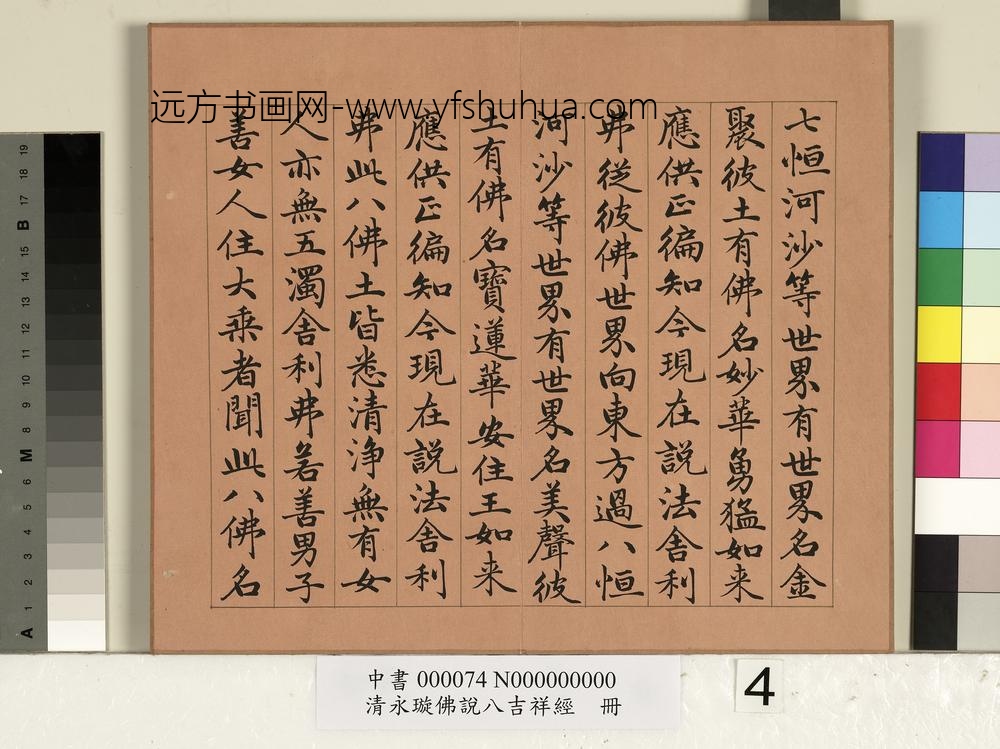 远方书画网-www.yfshuhua.com
七恒河沙等世界有世界名金
聚彼土有佛名妙華勇猛如来
應供正徧知今現在説法舎利
弗從彼佛世界向東方過八恒
河沙等世界有世界名美聲彼
土有佛名寶蓮華安住王如来
應供正徧知今現在説法舎利
弗此八佛土皆悉清浄無有女
人亦無五濁舎利弗若善男子
善女人住大乘者聞此八佛名
19
18
17
B
15
14
13
12
11
10
9
8
M
6
5
4
3
2
1
A
中書 000074 N000000000
清永璇佛說八吉祥經　冊
4